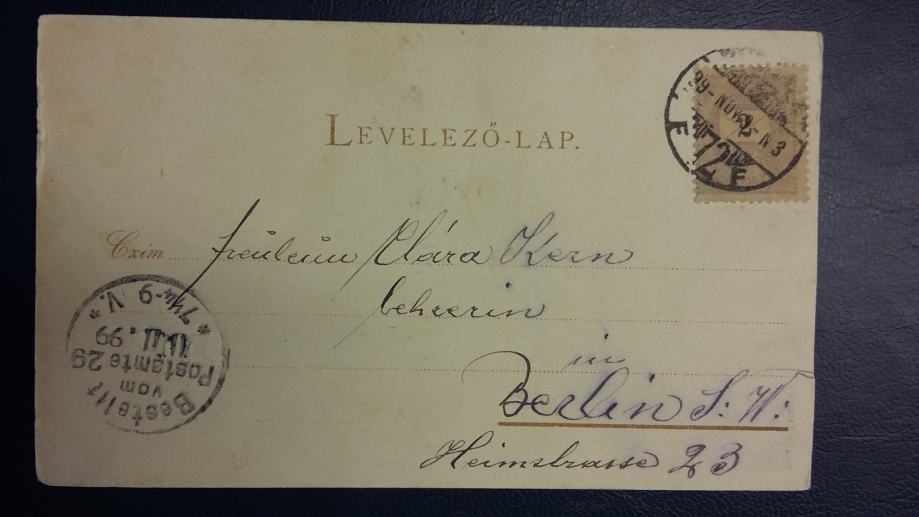 LEVELEZŐ-LAP.
99-NOV
N 3
2
72
F F
Czim
Fräulein Clára Kern
Lehrerin
in
Berlin S. W:
Heimstrasse 23
Bestellt
vom
Postamte 29
11.11.99
* 7¼-9 V. *